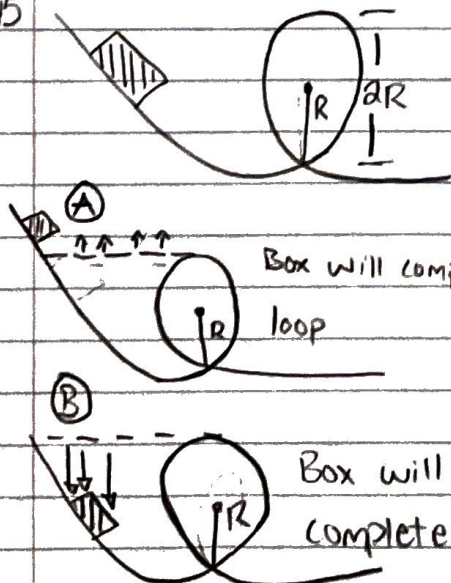 R
2R
A
Box will
loop
R
B
Box will
complete
R